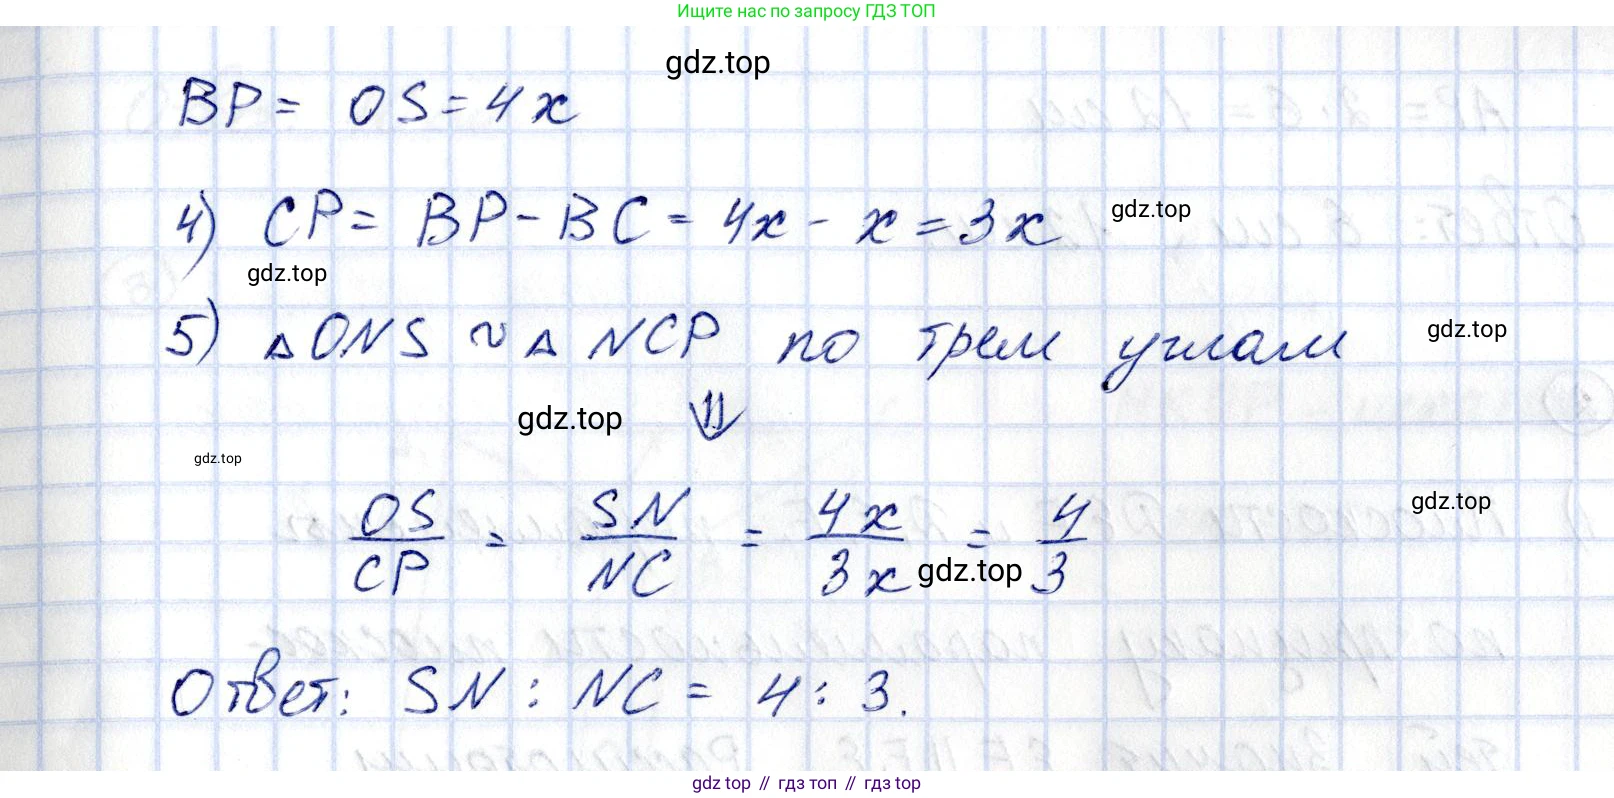 Ищите нас по запросу ГДЗ ТОП
gdz.top
BP = OS = 4x
4) CP = BP - BC = 4x - x = 3x
gdz.top
gdz.top
5) △ONS ~ △NCP по трем углам
gdz.top
⇓
gdz.top
gdz.top
OS/CP = SN/NC = 4x/3x = 4/3
gdz.top
gdz.top
Ответ: SN : NC = 4 : 3.
gdz top // гдз топ // гдз top